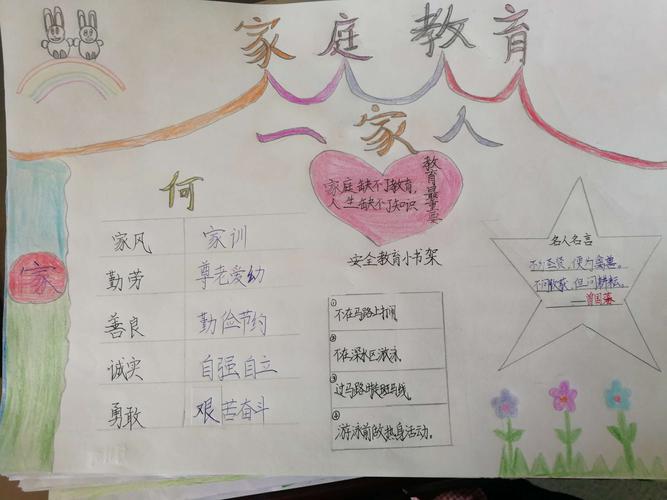 家庭教育
一家人
何
家风 家训
勤劳 尊老爱幼
善良 勤俭节约
诚实 自强自立
勇敢 艰苦奋斗
家
家庭缺不了教育,
人生缺不了知识
教育最重要
安全教育小书架
①
不在马路上打闹
②
不在深水区游泳
③
过马路时走斑马线
④
游泳前做热身活动。
名人名言
不为圣贤,便为禽兽。
不问收获,但问耕耘。
——曾国藩